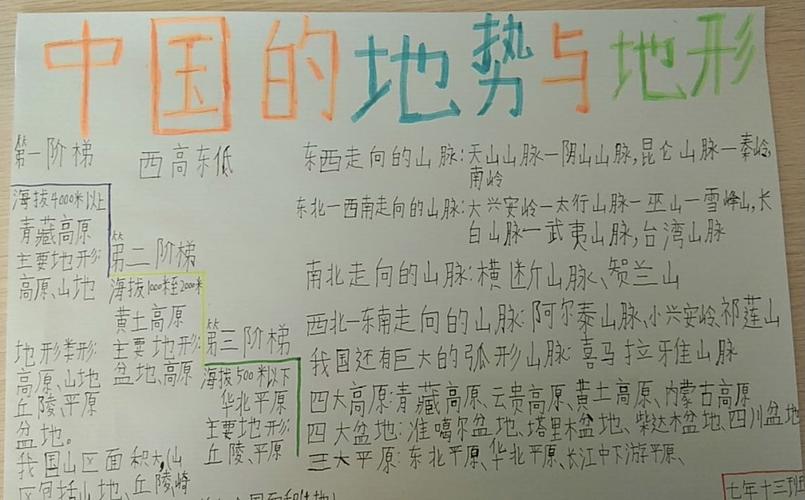 中国的地势与地形
第一阶梯
西高东低
海拔4000米以上
青藏高原
主要地形:
高原、山地
第二阶梯
海拔1000米至2000米
黄土高原
主要地形:
盆地、高原
第三阶梯
海拔500米以下
华北平原
主要地形:
丘陵、平原
地形类形:
高原、山地
丘陵、平原
盆地。
我国山区面积大,(山
区包括山地、丘陵、崎
东西走向的山脉:天山山脉—阴山山脉,昆仑山脉—秦岭,
南岭
东北—西南走向的山脉:大兴安岭—太行山脉—巫山—雪峰山,长
白山脉—武夷山脉,台湾山脉
南北走向的山脉:横断山脉、贺兰山
西北—东南走向的山脉:阿尔泰山脉、小兴安岭、祁莲山
我国还有巨大的弧形山脉:喜马拉牙雅山脉
四大高原:青藏高原、云贵高原、黄土高原、内蒙古高原
四大盆地:准噶尔盆地、塔里木盆地、柴达木盆地、四川盆地
三大平原:东北平原、华北平原、长江中下游平原、
七年十三班